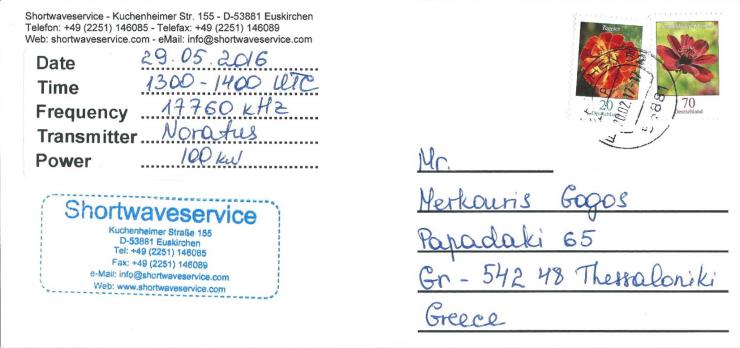 Shortwaveservice - Kuchenheimer Str. 155 - D-53881 Euskirchen
Telefon: +49 (2251) 146085 - Telefax: +49 (2251) 146089
Web: shortwaveservice.com - eMail: info@shortwaveservice.com
Date 29.05.2016
Time 1300-1400 UTC
Frequency 17760 kHz
Transmitter Noratus
Power 100 kW
Shortwaveservice
Kuchenheimer Straße 155
D-53881 Euskirchen
Tel: +49 (2251) 146085
Fax: +49 (2251) 146089
e-Mail: info@shortwaveservice.com
Web: www.shortwaveservice.com
Tagetes
20
Deutschland
70
Deutschland
53881
Mr.
Merkouris Gogos
Papadaki 65
Gr - 542 48 Thessaloniki
Greece